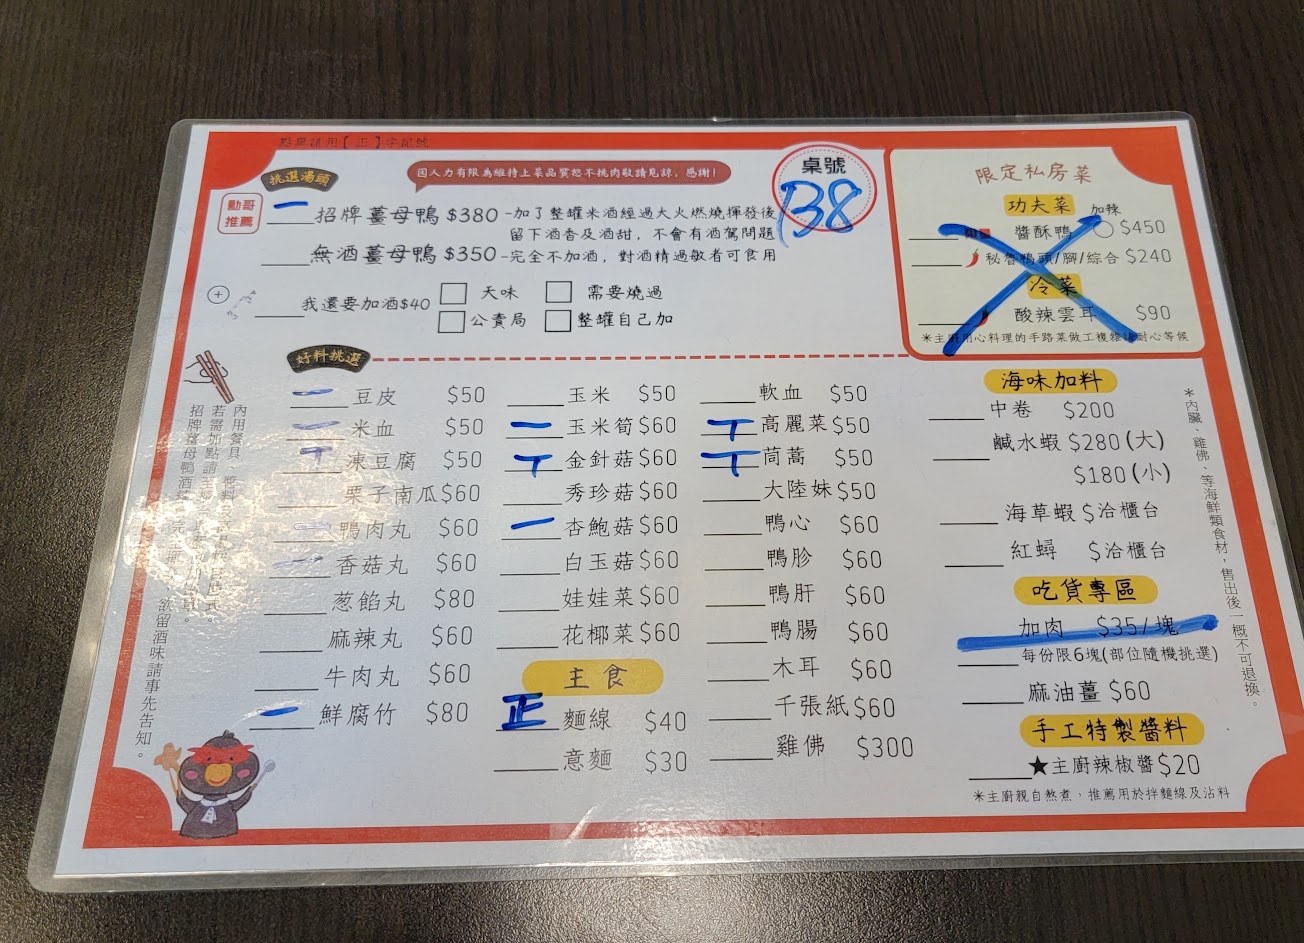 點單請用【正】字記號
挑選湯頭
因人力有限為維持上菜品質恕不挑肉敬請見諒，感謝！
桌號
B8
勳哥
推薦
一 招牌薑母鴨 $380-加了整罐米酒經過大火燃燒揮發後
留下酒香及酒甜，不會有酒駕問題
無酒薑母鴨 $350-完全不加酒，對酒精過敏者可食用
我還要加酒$40
天味
需要燒過
公賣局
整罐自己加
限定私房菜
功夫菜
加辣
醬酥鴨 $450
秘魯鴨頭/腳/綜合 $240
冷菜
酸辣雲耳 $90
好料挑選
一 豆皮 $50
一 米血 $50
丅 凍豆腐 $50
栗子南瓜 $60
鴨肉丸 $60
香菇丸 $60
葱餡丸 $80
麻辣丸 $60
牛肉丸 $60
一 鮮腐竹 $80
玉米 $50
一 玉米筍 $60
丅 金針菇 $60
秀珍菇 $60
一 杏鮑菇 $60
白玉菇 $60
娃娃菜 $60
花椰菜 $60
主食
正 麵線 $40
意麵 $30
軟血 $50
丅 高麗菜 $50
丅 茼蒿 $50
大陸妹 $50
鴨心 $60
鴨胗 $60
鴨肝 $60
鴨腸 $60
木耳 $60
千張紙 $60
雞佛 $300
海味加料
中卷 $200
鹹水蝦 $280(大)
$180(小)
海草蝦 $洽櫃台
紅蟳 $洽櫃台
吃貨專區
加肉 $35/塊
每份限6塊(部位隨機挑選)
麻油薑 $60
手工特製醬料
★主廚辣椒醬 $20
*主廚親自熬煮，推薦用於拌麵線及沾料
*內臟、雞佛、等海鮮類食材，售出後一概不可退換。
內用餐具、醬料
若需加點請至
招牌薑母鴨酒
欲留酒味請事先告知。